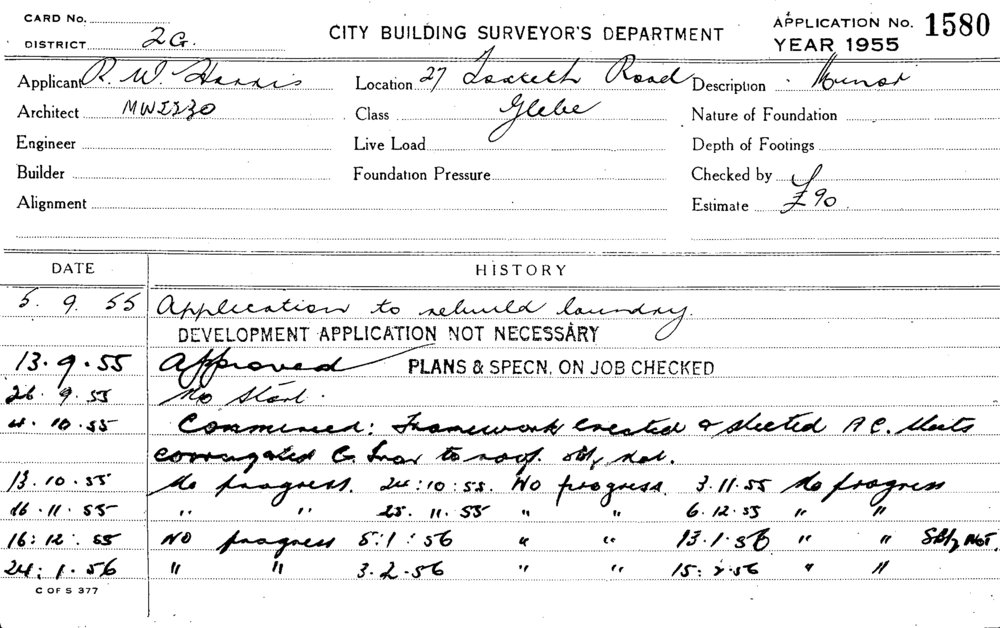 CARD No.
DISTRICT 2G.
CITY BUILDING SURVEYOR'S DEPARTMENT
APPLICATION No. 1580
YEAR 1955
Applicant R. W. Harris Location 27 Toxteth Road Description Minor
Architect MW2330 Class Glebe Nature of Foundation
Engineer Live Load Depth of Footings
Builder Foundation Pressure Checked by
Alignment Estimate £90
DATE HISTORY
5. 9. 55 Application to rebuild laundry.
DEVELOPMENT APPLICATION NOT NECESSARY
13.9.55 Approved PLANS & SPECN. ON JOB CHECKED
26. 9. 55 No Start.
4. 10. 55 Commenced: Framework erected & sheeted A C. Sheets
corrugated G. Iron to roof.
13. 10. 55 No progress. 24:10:55. No progress. 3.11.55 No progress
16.11.55 " " 25. 11. 55 " " 6.12.55 " "
16:12.55 NO progress 5:1:56 " " 13.1.56 " "
24:1.56 " " 3.2.56 " " 15:2.56 " "
C OF S 377